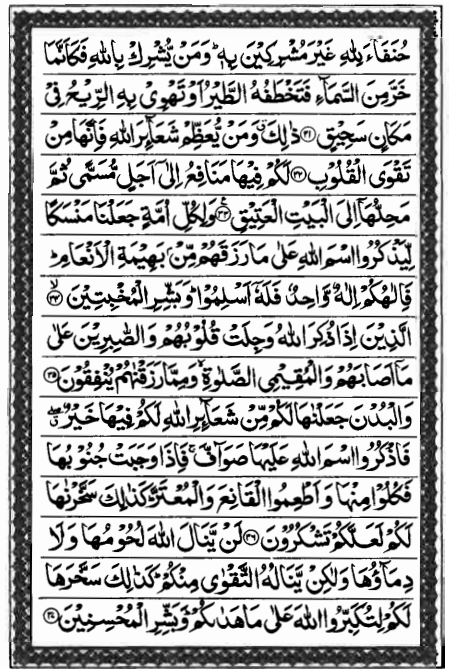 حُنَفَآءَ لِلّٰهِ غَيْرَ مُشْرِكِيْنَ بِهٖ ؕ وَمَنْ يُّشْرِكْ بِاللّٰهِ فَكَاَنَّمَا
خَرَّ مِنَ السَّمَآءِ فَتَخْطَفُهُ الطَّيْرُ اَوْ تَهْوِىْ بِهِ الرِّيْحُ فِىْ
مَكَانٍ سَحِيْقٍ ﴿۳۱﴾ ذٰلِكَ ۗ وَمَنْ يُّعَظِّمْ شَعَآئِرَ اللّٰهِ فَاِنَّهَا مِنْ
تَقْوَى الْقُلُوْبِ ﴿۳۲﴾ لَكُمْ فِيْهَا مَنَافِعُ اِلٰٓى اَجَلٍ مُّسَمًّى ثُمَّ
مَحِلُّهَاۤ اِلَى الْبَيْتِ الْعَتِيْقِ ﴿۳۳﴾ وَلِكُلِّ اُمَّةٍ جَعَلْنَا مَنْسَكًا
لِّيَذْكُرُوا اسْمَ اللّٰهِ عَلٰى مَا رَزَقَهُمْ مِّنْۢ بَهِيْمَةِ الْاَنْعَامِ ؕ
فَاِلٰهُكُمْ اِلٰهٌ وَّاحِدٌ فَلَهٗۤ اَسْلِمُوْا ؕ وَبَشِّرِ الْمُخْبِتِيْنَ ۙ﴿۳۴﴾
الَّذِيْنَ اِذَا ذُكِرَ اللّٰهُ وَجِلَتْ قُلُوْبُهُمْ وَالصّٰبِرِيْنَ عَلٰى
مَاۤ اَصَابَهُمْ وَالْمُقِيْمِى الصَّلٰوةِ ۙ وَمِمَّا رَزَقْنٰهُمْ يُنْفِقُوْنَ ﴿۳۵﴾
وَالْبُدْنَ جَعَلْنٰهَا لَكُمْ مِّنْ شَعَآئِرِ اللّٰهِ لَكُمْ فِيْهَا خَيْرٌ ۖ
فَاذْكُرُوا اسْمَ اللّٰهِ عَلَيْهَا صَوَآفَّ ۚ فَاِذَا وَجَبَتْ جُنُوْبُهَا
فَكُلُوْا مِنْهَا وَاَطْعِمُوا الْقَانِعَ وَالْمُعْتَرَّ ؕ كَذٰلِكَ سَخَّرْنٰهَا
لَكُمْ لَعَلَّكُمْ تَشْكُرُوْنَ ﴿۳۶﴾ لَنْ يَّنَالَ اللّٰهَ لُحُوْمُهَا وَلَا
دِمَآؤُهَا وَلٰكِنْ يَّنَالُهُ التَّقْوٰى مِنْكُمْ ؕ كَذٰلِكَ سَخَّرَهَا
لَكُمْ لِتُكَبِّرُوا اللّٰهَ عَلٰى مَا هَدٰٮكُمْ ؕ وَبَشِّرِ الْمُحْسِنِيْنَ ﴿۳۷﴾